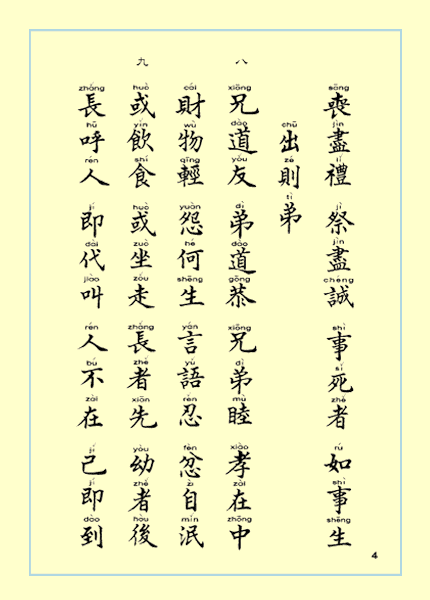 sāng jìn lǐ jì jìn chéng shì sǐ zhě rú shì shēng
喪盡禮 祭盡誠 事死者 如事生
chū zé tì
出則弟
八
xiōng dào yǒu dì dào gōng xiōng dì mù xiào zài zhōng
兄道友 弟道恭 兄弟睦 孝在中
cái wù qīng yuàn hé shēng yán yǔ rěn fèn zì mǐn
財物輕 怨何生 言語忍 忿自泯
九
huò yǐn shí huò zuò zǒu zhǎng zhě xiān yòu zhě hòu
或飲食 或坐走 長者先 幼者後
zhǎng hū rén jí dài jiào rén bú zài jǐ jí dào
長呼人 即代叫 人不在 己即到
4